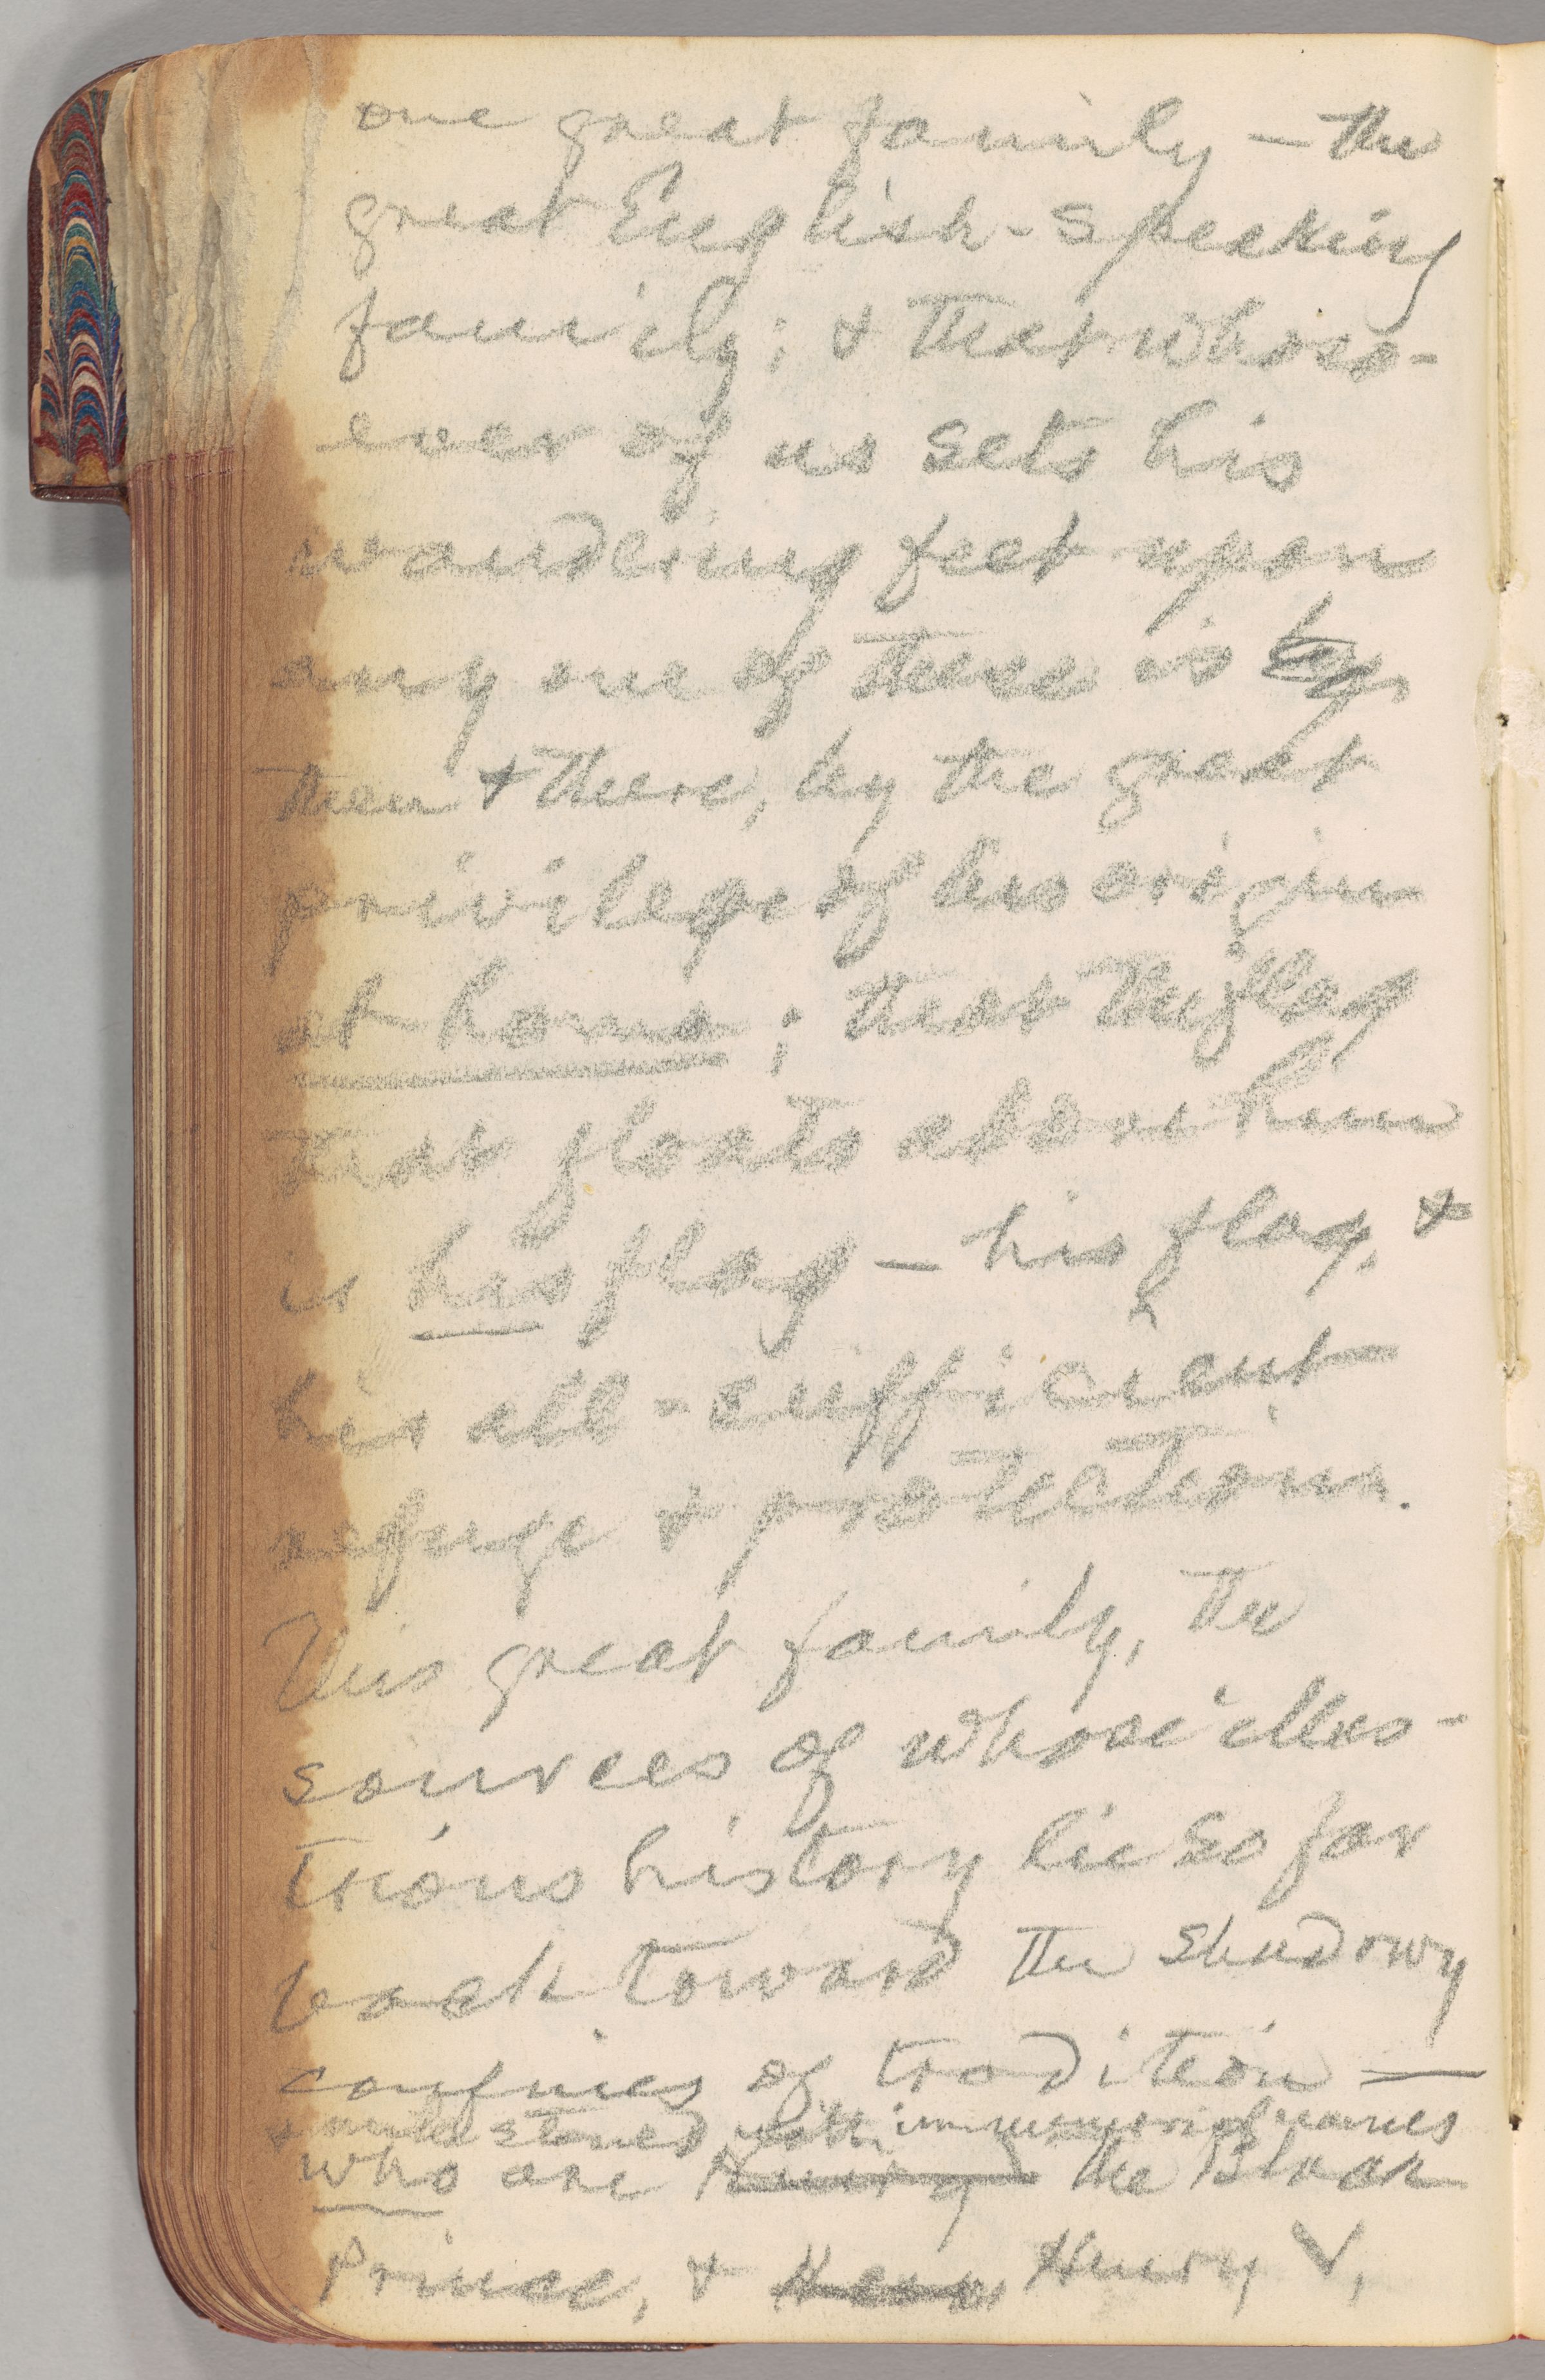 one great family — the
great English-speaking
family; & that whoso-
ever of us sets his
wandering feet upon
any one of these is by,
then & there, by the great
privilege of his origin
at home; that the flag
that floats above him
is his flag — his flag, &
his all-sufficient
refuge & protection.
This great family, the
sources of whose illus-
trious history lie so far
back toward the shadowy
confines of tradition —
& milestoned with immemorial names
who are the Black
Prince, & Henry V,